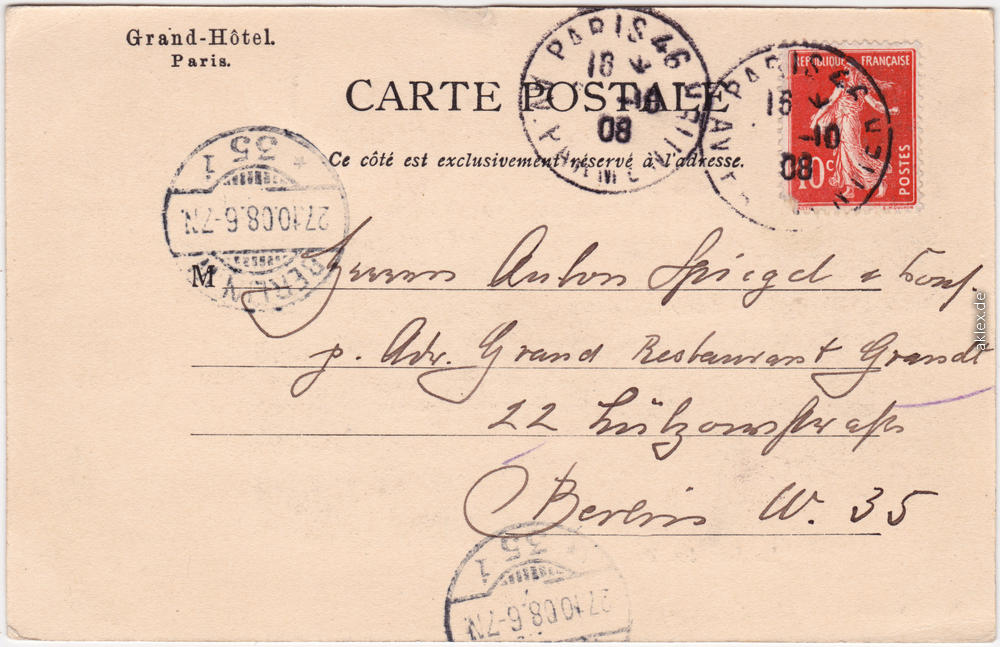 Grand-Hôtel.
Paris.
CARTE POSTALE
Ce côté est exclusivement réservé à l'adresse.
PARIS 46
16
-10
08
PARIS
16
-10
08
RÉPUBLIQUE FRANÇAISE
10c
POSTES
BERLIN
27.10.08.6-7N.
* 35 1
M
Herrn Anton Spiegel &
p. Adr. Grand Restaurant Grandt
22 Lützowstraße
Berlin W. 35
* 35 1
27.10.08.6-7N.
aklex.de